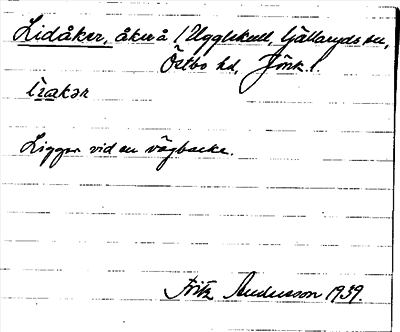 Lidåker, åker å 1 Ugglekull, Tjällaryds sn,
Östbo hd, Jönk. l.
Ligger vid en vägbacke.
Fritz Andersson 1939.